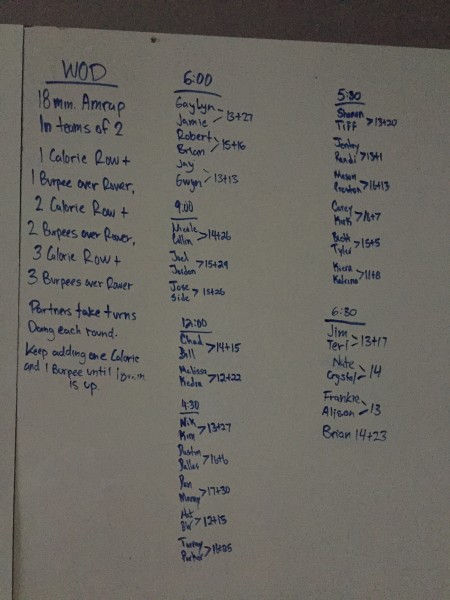 WOD
18 min. Amrap
In teams of 2
1 Calorie Row +
1 Burpee over Rower,
2 Calorie Row +
2 Burpees over Rower,
3 Calorie Row +
3 Burpees over Rower
Partners take turns
Doing each round.
Keep adding one Calorie
and 1 Burpee until
is up.
6:00
Gaylyn
Jamie > 13+27
Robert
Brian > 15+16
Jay
Gwyn > 13+13
9:00
Nicole
> 14+26
Joel
Jordan > 15+29
Jose
Side > 15+26
12:00
Chad
Bill > 14+15
Melissa
Kedra > 12+22
4:30
Nik
Kim > 13+27
Dustin
Dallas > 16+6
Dan
Manny > 17+30
> 12+15
Tammy
Parker
5:30
Shanon
Tiff > 13+20
Randi > 13+1
Mason
> 16+13
Corey
> 16+7
Beth
Tyler > 15+5
Kiera
Katrina > 11+8
6:30
Jim
Teri > 13+17
Nate
Crystal > 14
Frankie
Alison > 13
Brian 14+23